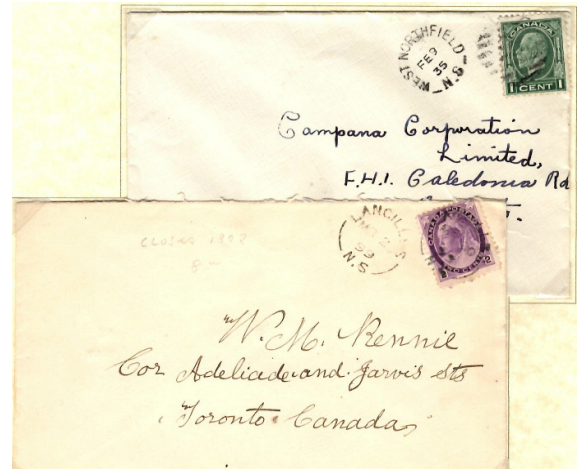 WEST NORTHFIELD
FE 9
35
N.S.
CANADA
1 CENT 1
Campana Corporation
Limited,
F.H.1. Caledonia Rd
N.S.
99
CANADA POSTAGE
CLOSED 1902
8-
W. M. Rennie
Cor Adeliade and Jarvis Sts
Toronto Canada